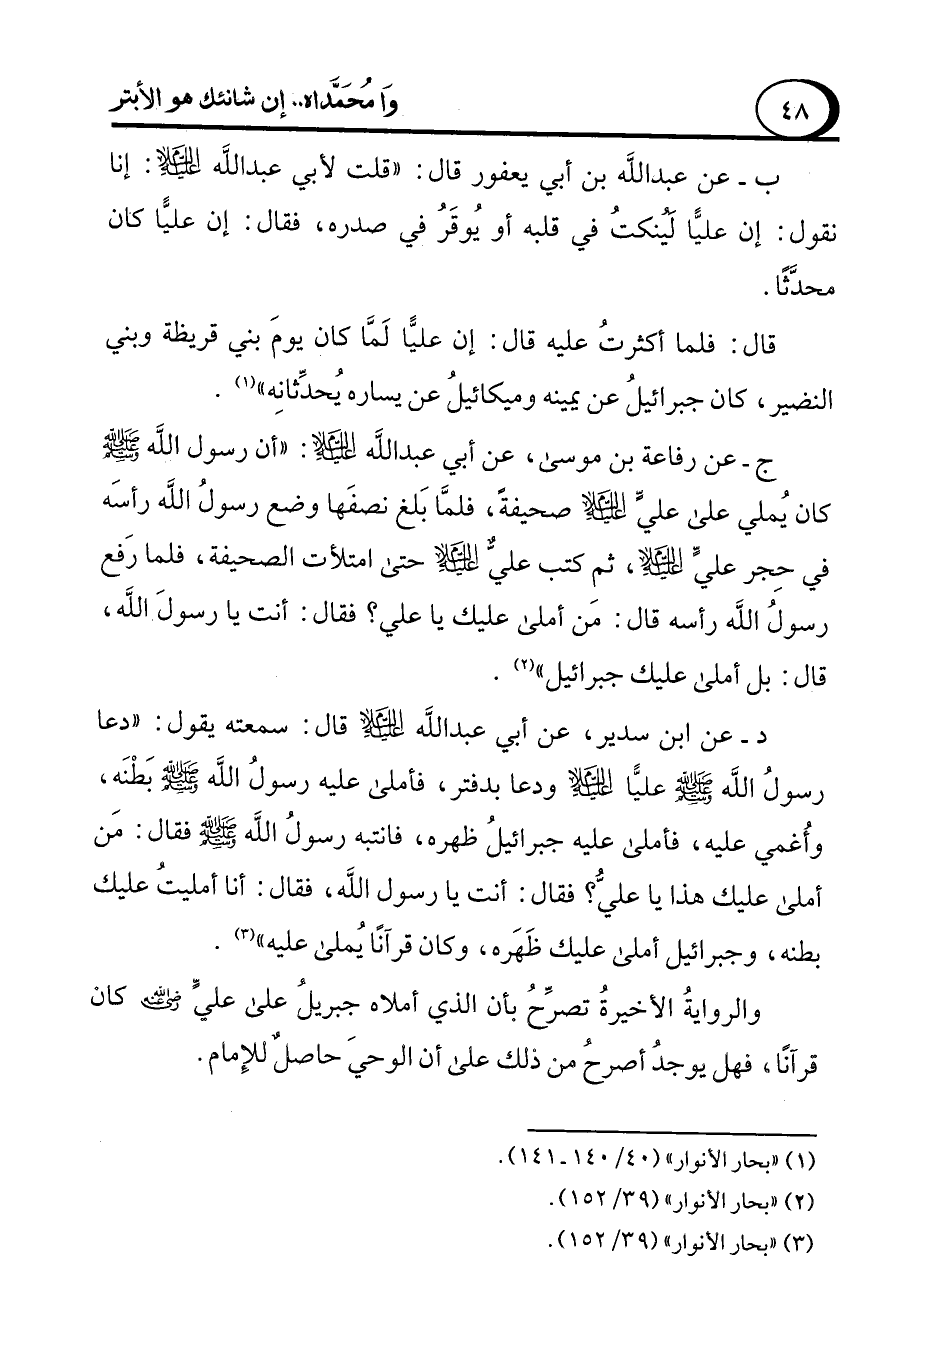 ٤٨
وَا مُحَمَّداه.. إن شانئك هو الأبتر
ب ـ عن عبداللَّه بن أبي يعفور قال: «قلت لأبي عبداللَّه عليه السلام: إنا
نقول: إن عليًّا لَيُنكتُ في قلبه أو يُوقَرُ في صدره، فقال: إن عليًّا كان
محدَّثًا.
قال: فلما أكثرتُ عليه قال: إن عليًّا لَمَّا كان يومَ بني قريظة وبني
النضير، كان جبرائيلُ عن يمينه وميكائيلُ عن يساره يُحدِّثانِه»(١) .
ج ـ عن رفاعة بن موسىٰ، عن أبي عبداللَّه عليه السلام: «أن رسول اللَّه ﷺ
كان يُملي علىٰ عليٍّ عليه السلام صحيفةً، فلمَّا بَلغ نصفَها وضع رسولُ اللَّه رأسَه
في حِجر عليٍّ عليه السلام، ثم كتب عليٌّ عليه السلام حتىٰ امتلأت الصحيفة، فلما رَفع
رسولُ اللَّه رأسه قال: مَن أملىٰ عليك يا علي؟ فقال: أنت يا رسولَ اللَّه،
قال: بل أملىٰ عليك جبرائيل»(٢) .
د ـ عن ابن سدير، عن أبي عبداللَّه عليه السلام قال: سمعته يقول: «دعا
رسولُ اللَّه ﷺ عليًّا عليه السلام ودعا بدفتر، فأملىٰ عليه رسولُ اللَّه ﷺ بَطْنَه،
وأُغمي عليه، فأملىٰ عليه جبرائيلُ ظهره، فانتبه رسولُ اللَّه ﷺ فقال: مَن
أملىٰ عليك هذا يا عليُّ؟ فقال: أنت يا رسول اللَّه، فقال: أنا أمليتُ عليك
بطنه، وجبرائيل أملىٰ عليك ظَهَره، وكان قرآنًا يُملىٰ عليه»(٣) .
والروايةُ الأخيرةُ تصرِّحُ بأن الذي أملاه جبريلُ علىٰ عليٍّ رضي الله عنه كان
قرآنًا، فهل يوجدُ أصرحُ من ذلك علىٰ أن الوحيَ حاصلٌ للإمام.
(١) «بحار الأنوار» (٤٠/ ١٤٠ـ١٤١).
(٢) «بحار الأنوار» (٣٩/ ١٥٢).
(٣) «بحار الأنوار» (٣٩/ ١٥٢).